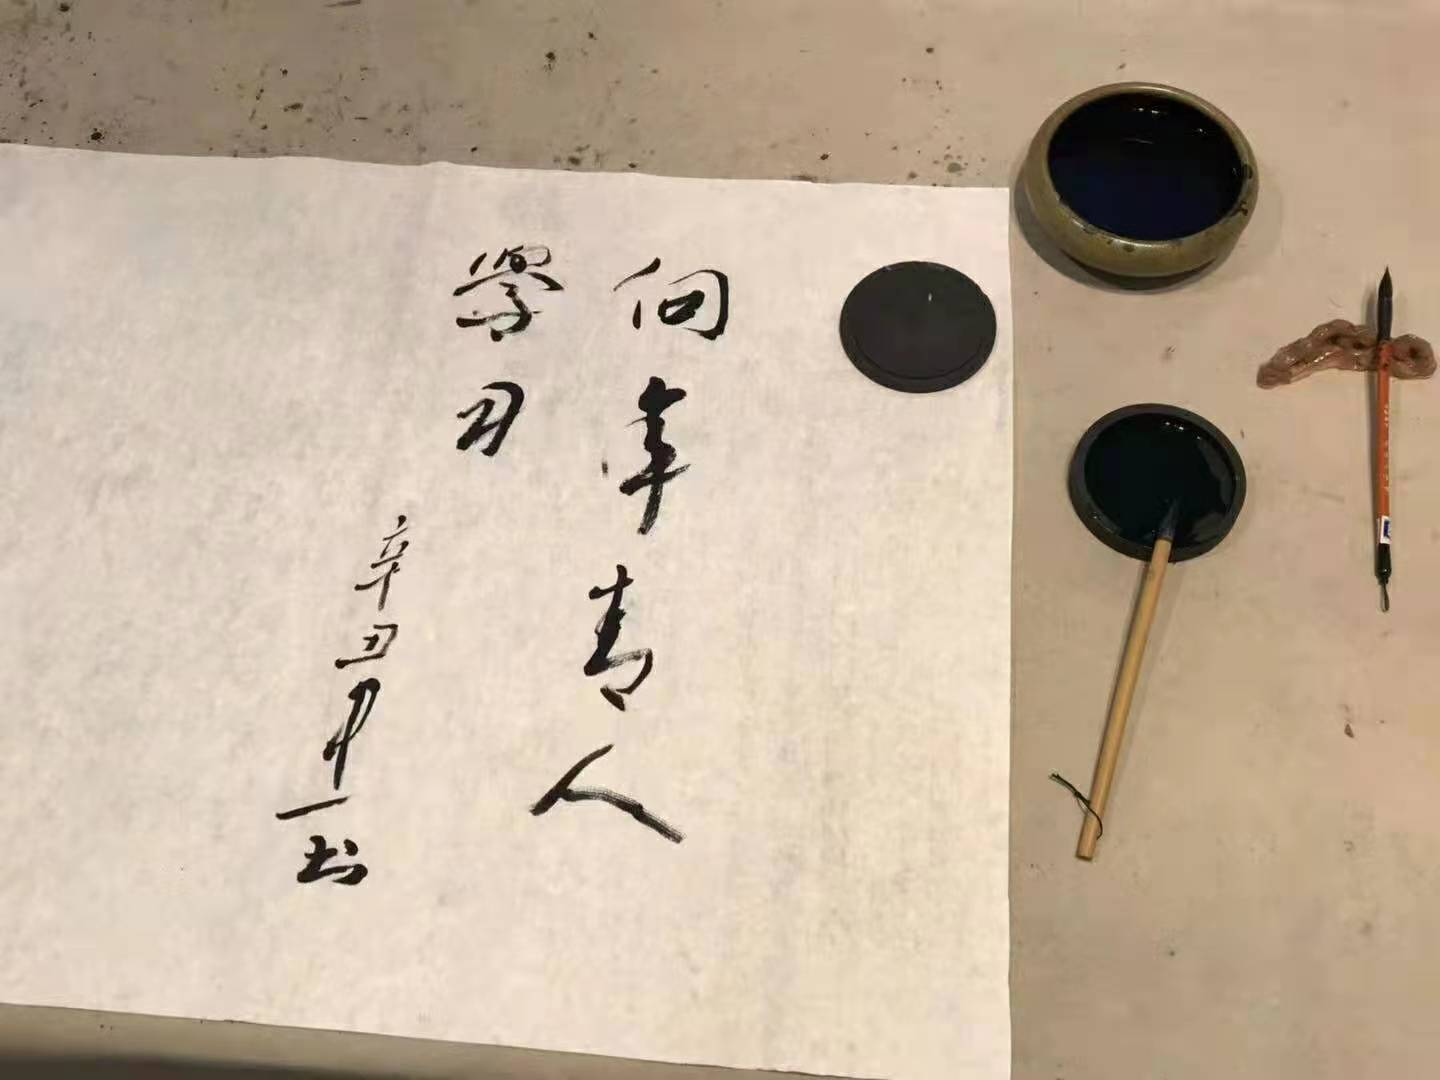 向年青人
學习
辛丑一书